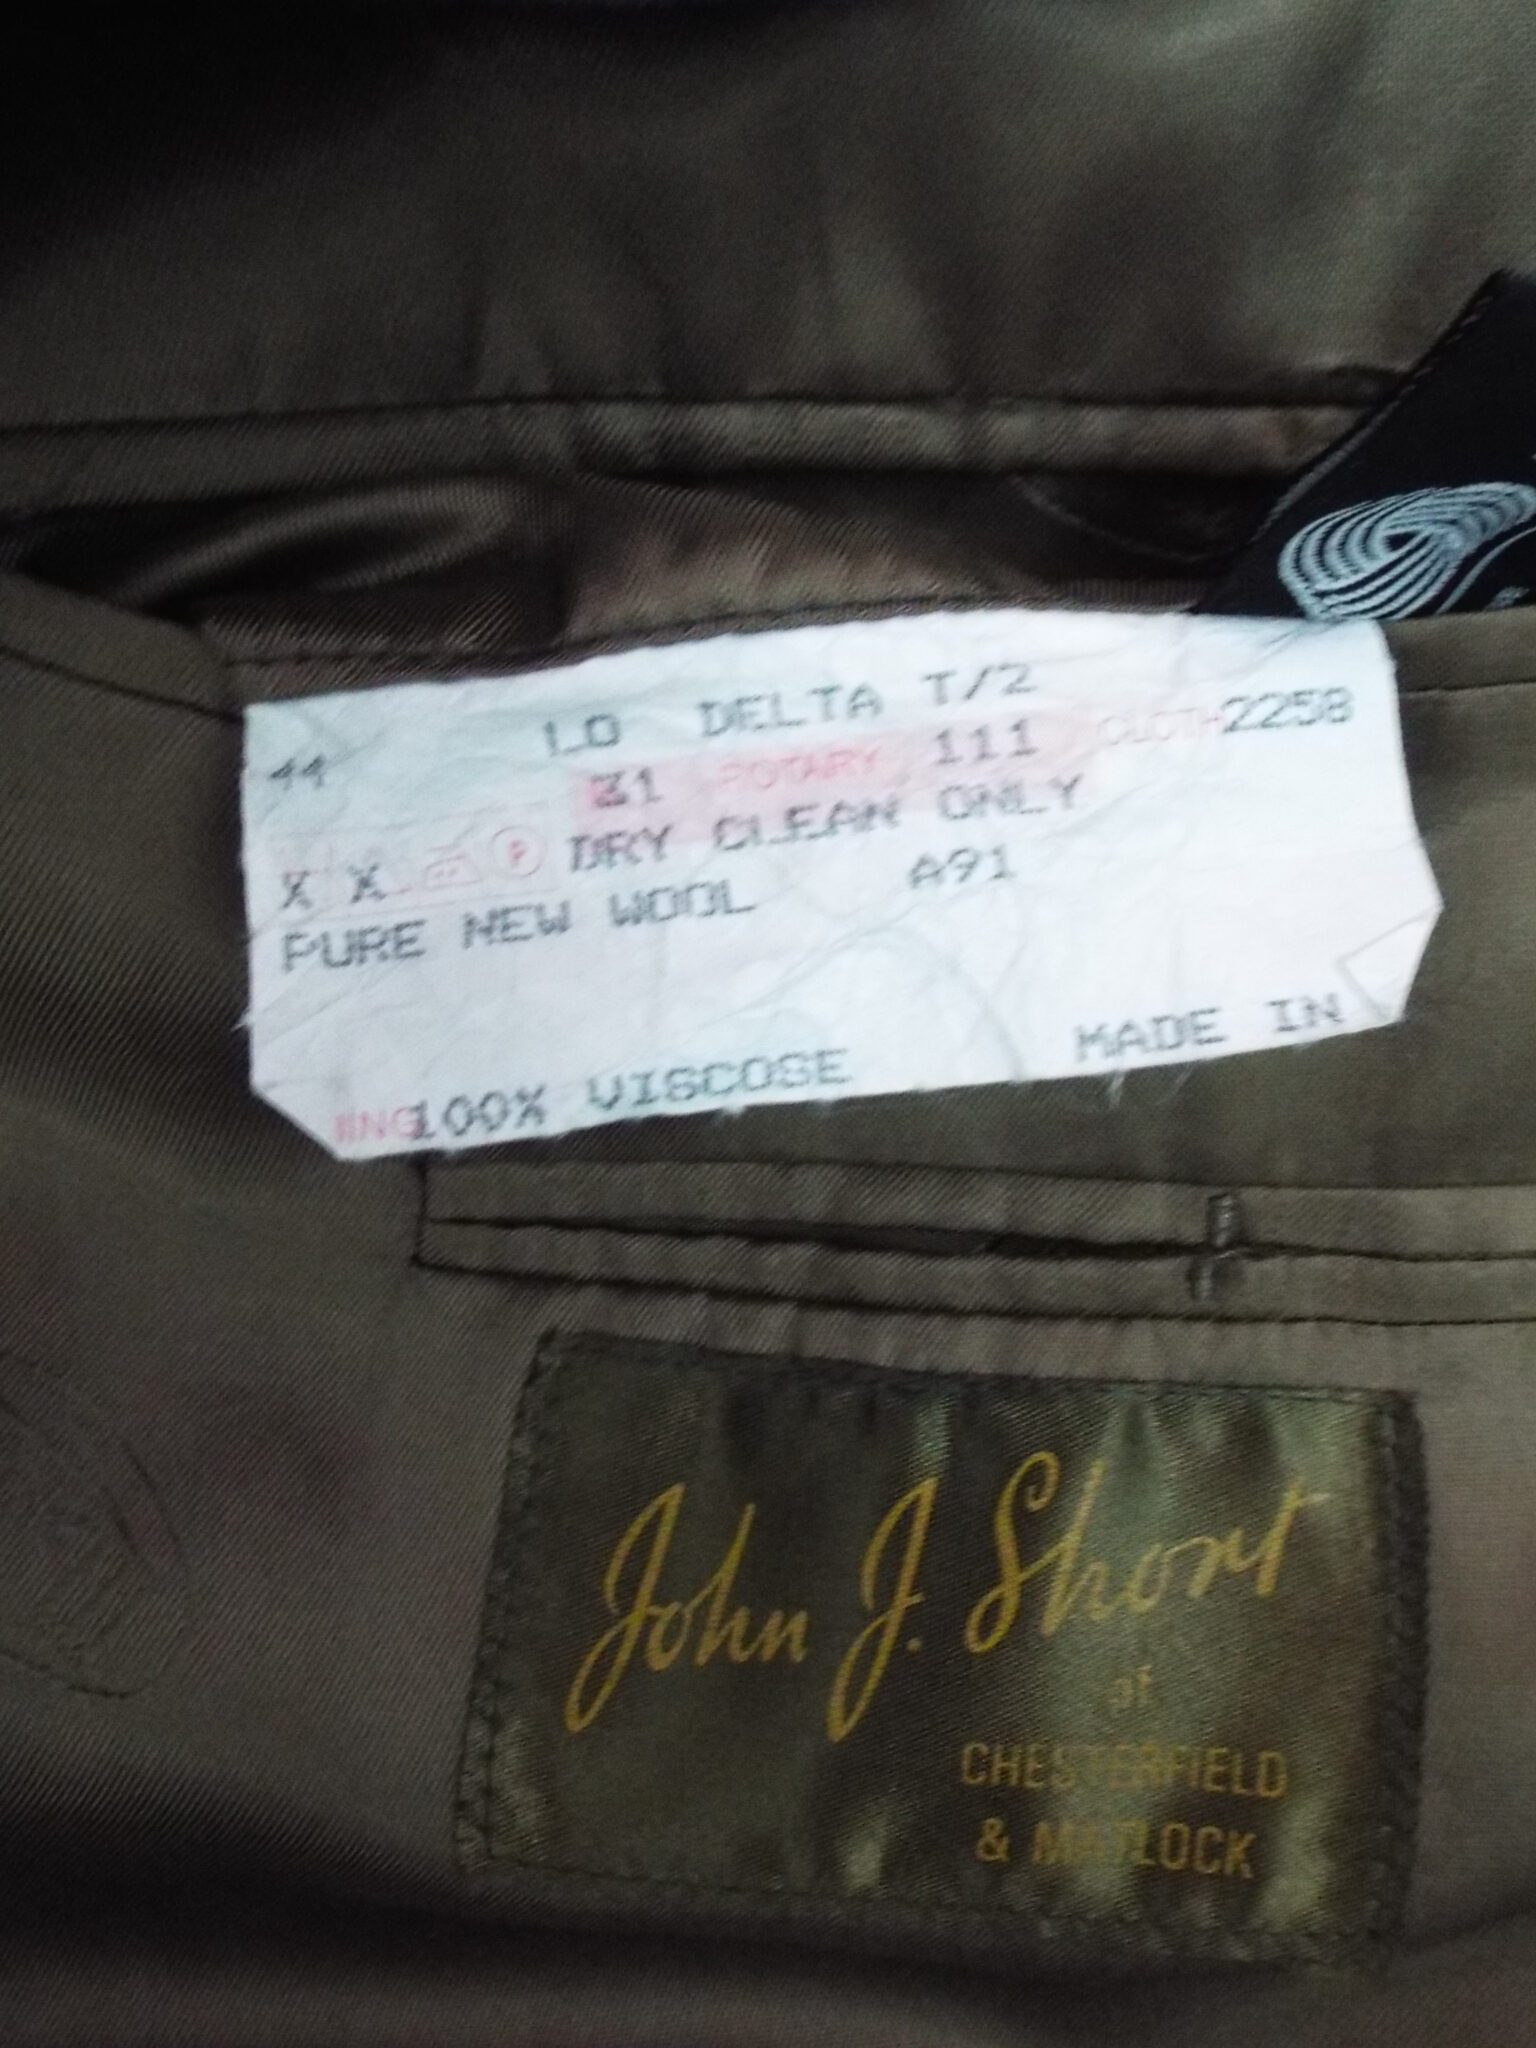 44 LO DELTA T/2
31 ROTARY 111 CLOTH 2258
X X P DRY CLEAN ONLY
PURE NEW WOOL A91
100% VISCOSE MADE IN
John J. Short
of
CHESTERFIELD
& MATLOCK